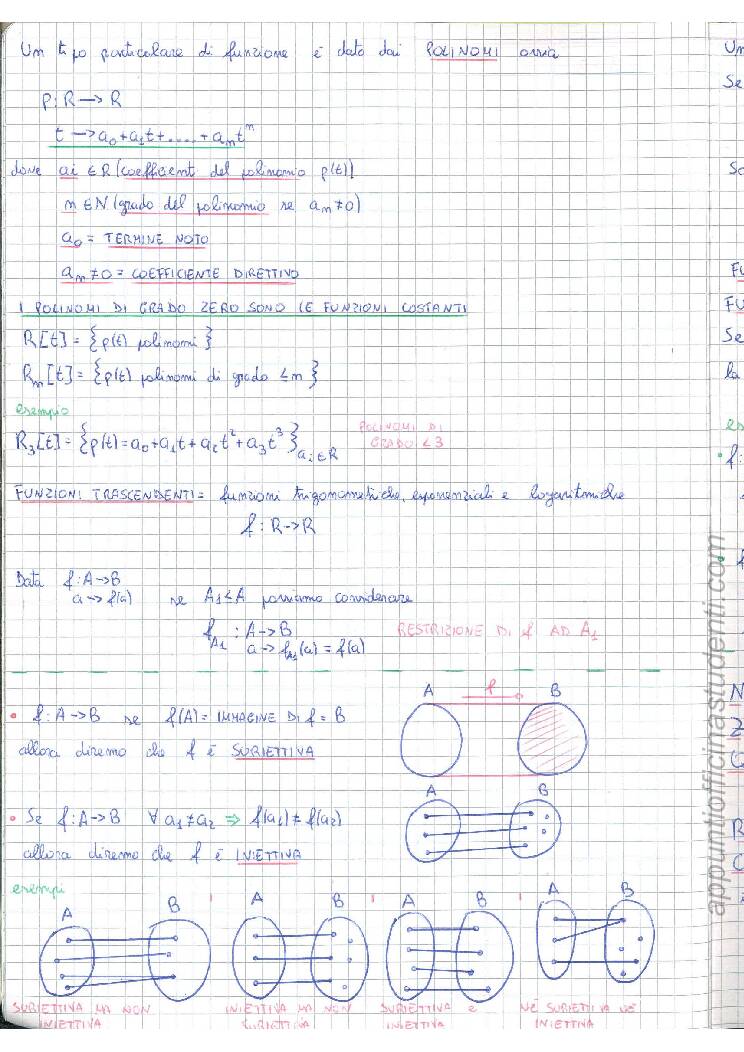 Un tipo particolare di funzione è dato dai POLINOMI ossia
p: R → R
t → a₀+a₁t+.....+aₙtⁿ
dove ai ∈ R (coefficienti del polinomio p(t))
n ∈ N (grado del polinomio se aₙ≠0)
a₀ = TERMINE NOTO
aₙ≠0 = COEFFICIENTE DIRETTIVO
I POLINOMI DI GRADO ZERO SONO LE FUNZIONI COSTANTI
R[t] = {p(t) polinomi}
Rₙ[t] = {p(t) polinomi di grado ≤ n}
esempio
R₃[t] = {p(t) = a₀+a₁t+a₂t²+a₃t³} ai ∈ R
POLINOMI DI
GRADO ≤3
FUNZIONI TRASCENDENTI = funzioni trigonometriche, esponenziali e logaritmiche
f: R → R
Data f: A → B
a → f(a)
se A₁≤A possiamo considerare
f_A₁ : A → B
a → f_A₁(a) = f(a)
RESTRIZIONE DI f AD A₁
• f: A → B se f(A) = IMMAGINE DI f = B
allora diremo che f è SURIETTIVA
A f B
• Se f: A → B ∀ a₁≠a₂ ⇒ f(a₁) ≠ f(a₂)
allora diremo che f è INIETTIVA
A B
esempi
A B A B A B A B
SURIETTIVA MA NON
INIETTIVA
INIETTIVA MA NON
SURIETTIVA
SURIETTIVA e
INIETTIVA
NÉ SURIETTIVA NÉ
INIETTIVA
appuntiofficinastudenti.com
Un
Se
So
FU
FU
Se
la
es
• f:
• f
N
Z
Q
R
C